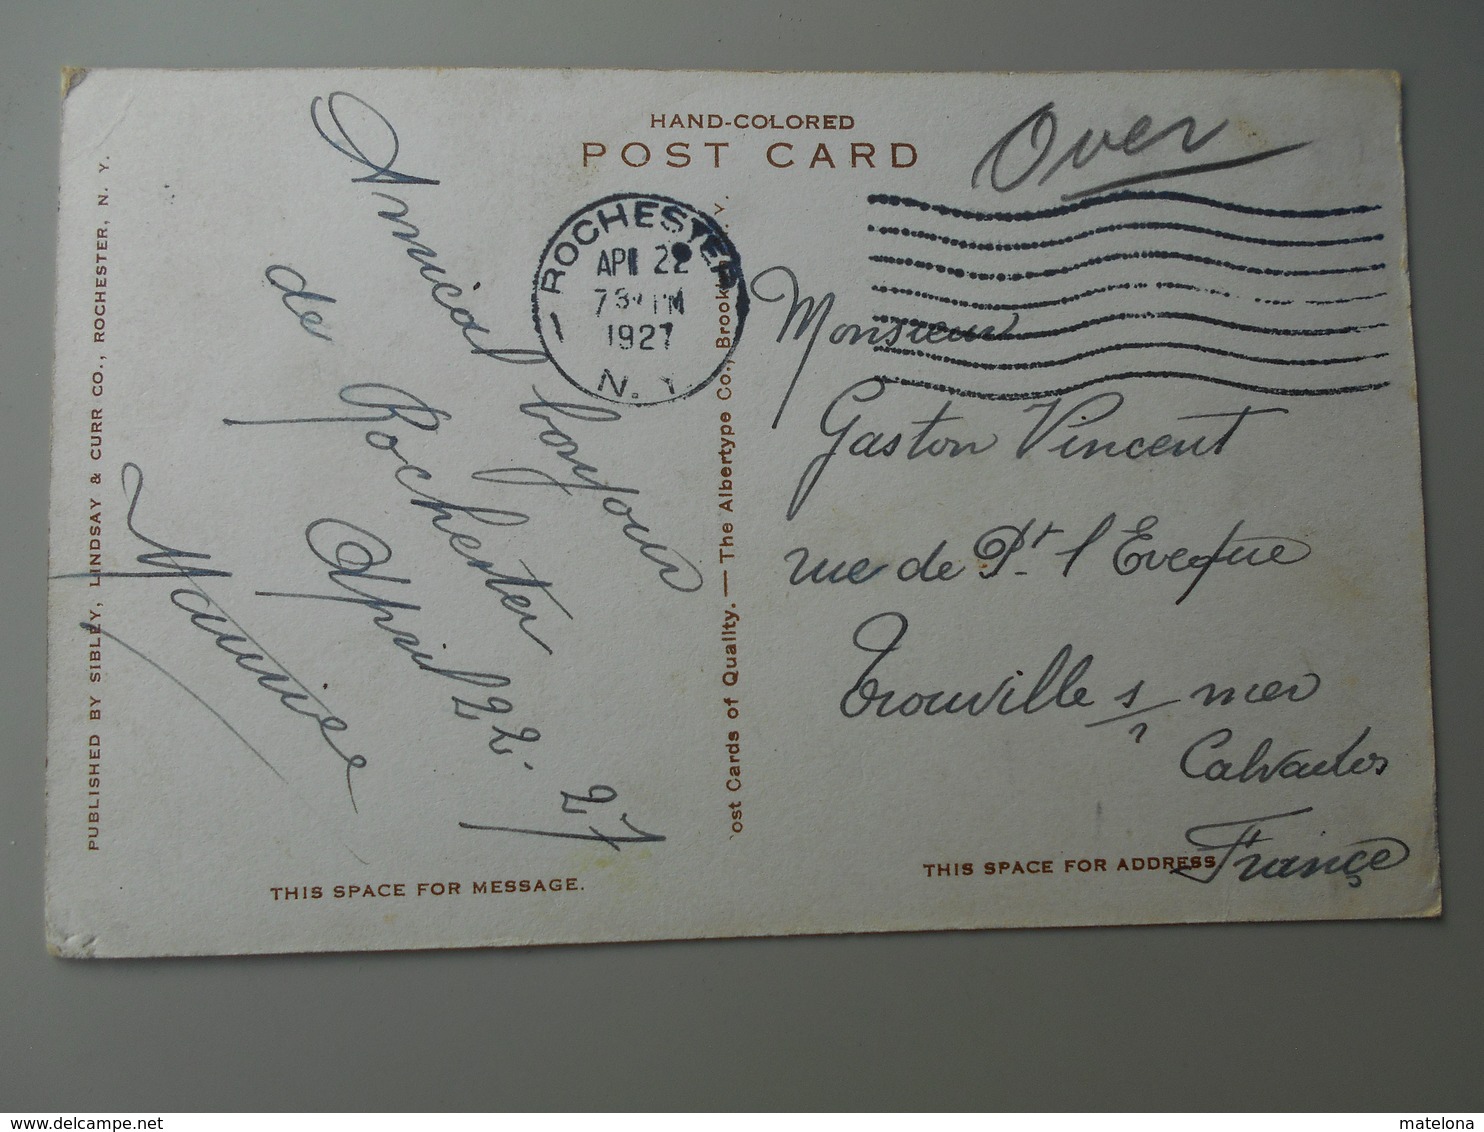 HAND-COLORED
POST CARD
Over
ROCHESTER
APR 22
730 PM
1927
N. Y.
Amical bonjour
de Rochester
April 22. 27
Maurice
Monsieur
Gaston Vincent
rue de Pt. l'Eveque
Trouville s/ mer
Calvados
France
PUBLISHED BY SIBLEY, LINDSAY & CURR CO., ROCHESTER, N. Y.
Post Cards of Quality. — The Albertype Co., Brooklyn, N. Y.
THIS SPACE FOR MESSAGE.
THIS SPACE FOR ADDRESS
delcampe.net
matelona